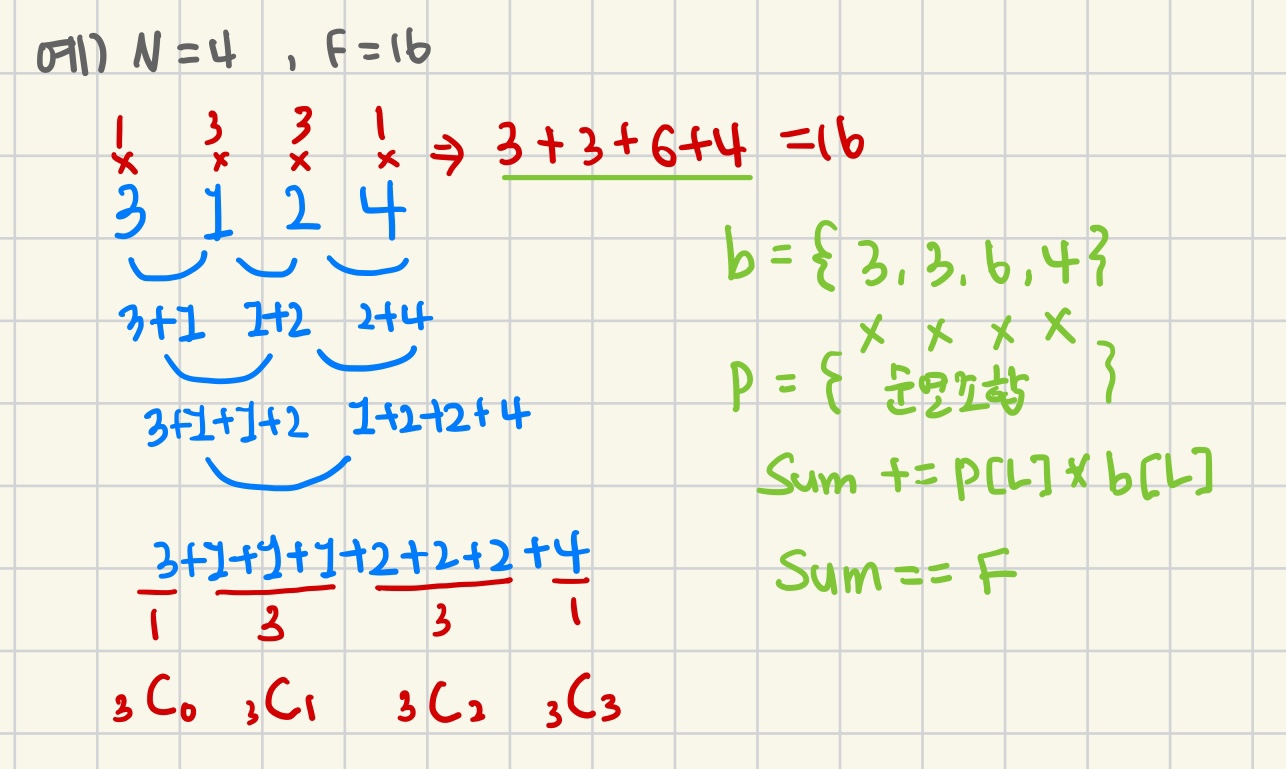 예1) N=4 , F=16
1 3 3 1
× × × × ⇒ 3+3+6+4 =16
3 1 2 4
3+1 1+2 2+4
3+1+1+2 1+2+2+4
3+1+1+1+2+2+2+4
1 3 3 1
₃C₀ ₃C₁ ₃C₂ ₃C₃
b = { 3, 3, 6, 4 }
× × × ×
P = { 순열 }
Sum += P[L] * b[L]
Sum == F